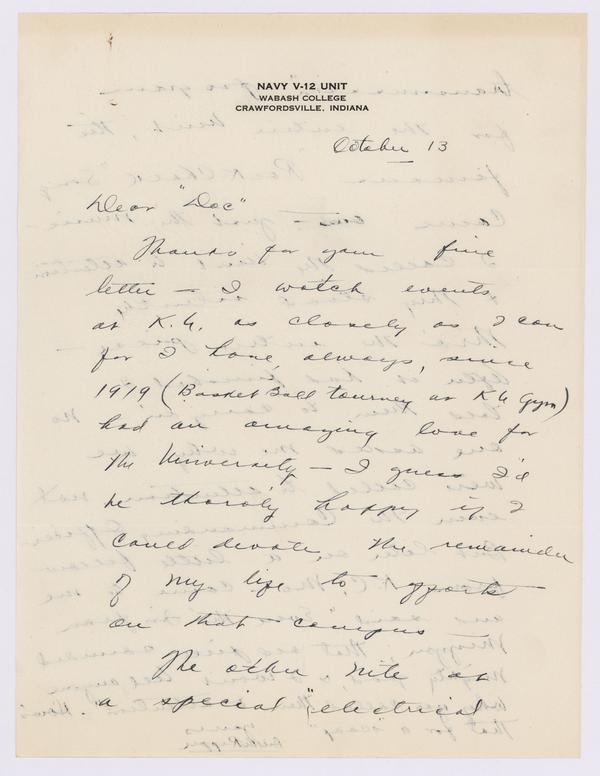 NAVY V-12 UNIT
WABASH COLLEGE
CRAWFORDSVILLE, INDIANA
October 13
Dear "Doc"
Thanks for your fine
letter — I watch events
at K.U. as closely as I can
for I have, always, since
1919 (Basket Ball tourney at KU Gym)
had an amazing love for
the University — I guess I'd
be thoroly happy if I
could devote, the remainder
of my life to efforts
on that campus
The other nite at
a special "electrical